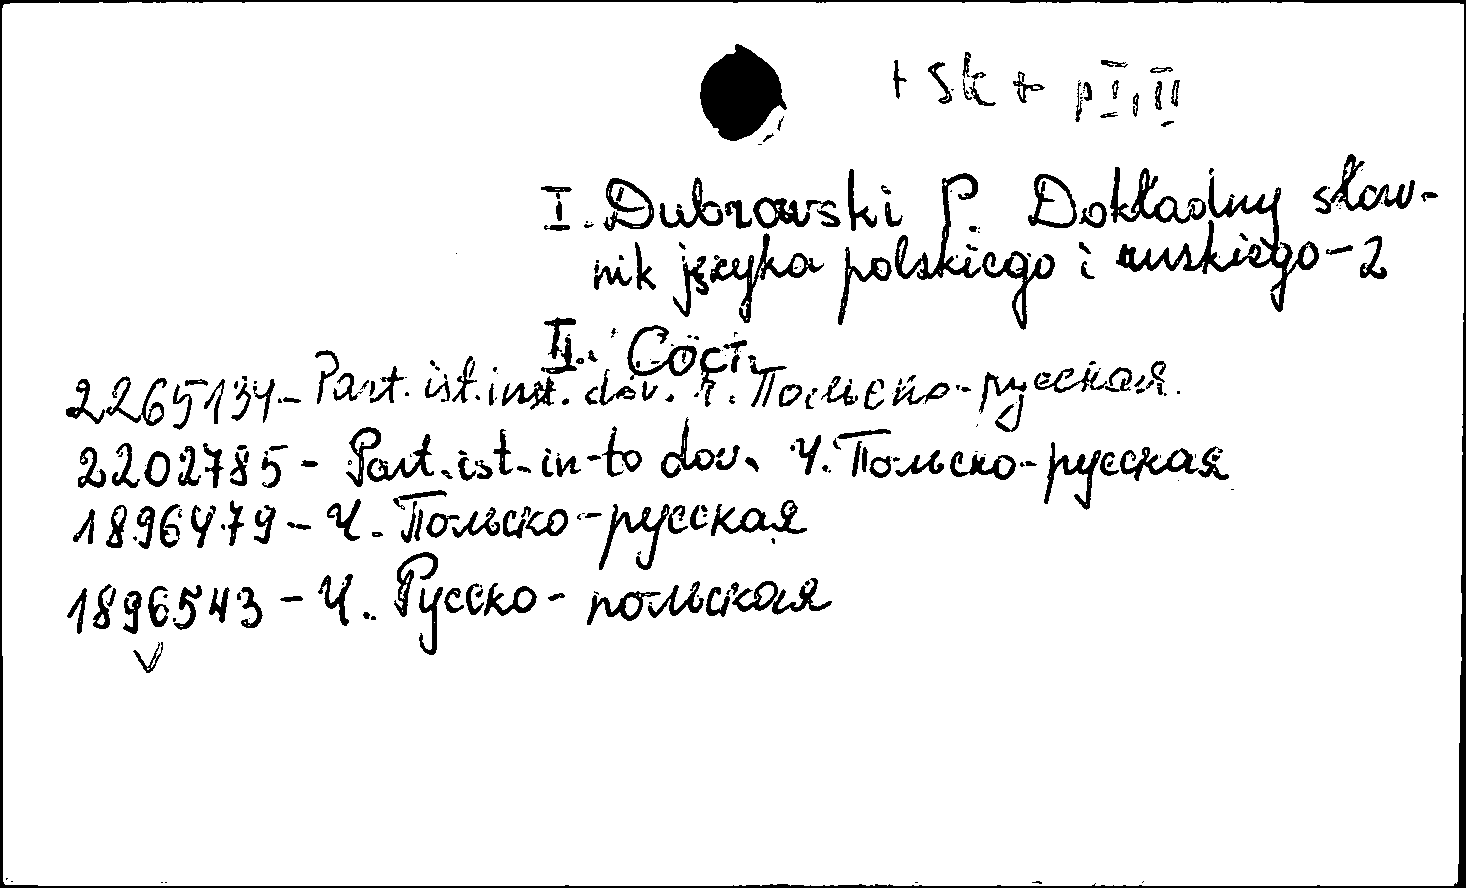 + sk + p I, II
I. Dubrowski P. Dokładny słow-
nik języka polskiego i ruskiego - 2
II. Сост.
2265134 - Part. ist. inst. dov. Ч. Польско-русская.
2202785 - Part. ist. in-to dov. Ч. Польско-русская
1896479 - Ч. Польско-русская
1896543 - Ч. Русско-польская